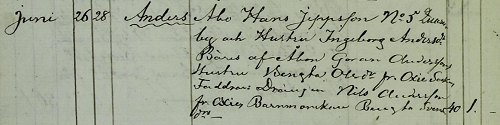 Juni 26 28 Anders Åbo Hans Jeppsson No 5
by och Hustru Ingeborg Andersdr
Bars af Åbon Göran Andersson
Hustru Bengta fr Oxie
Faddrar Drängen Nils Andersson
fr Oxie Barnmorskan Bengta 40 1.